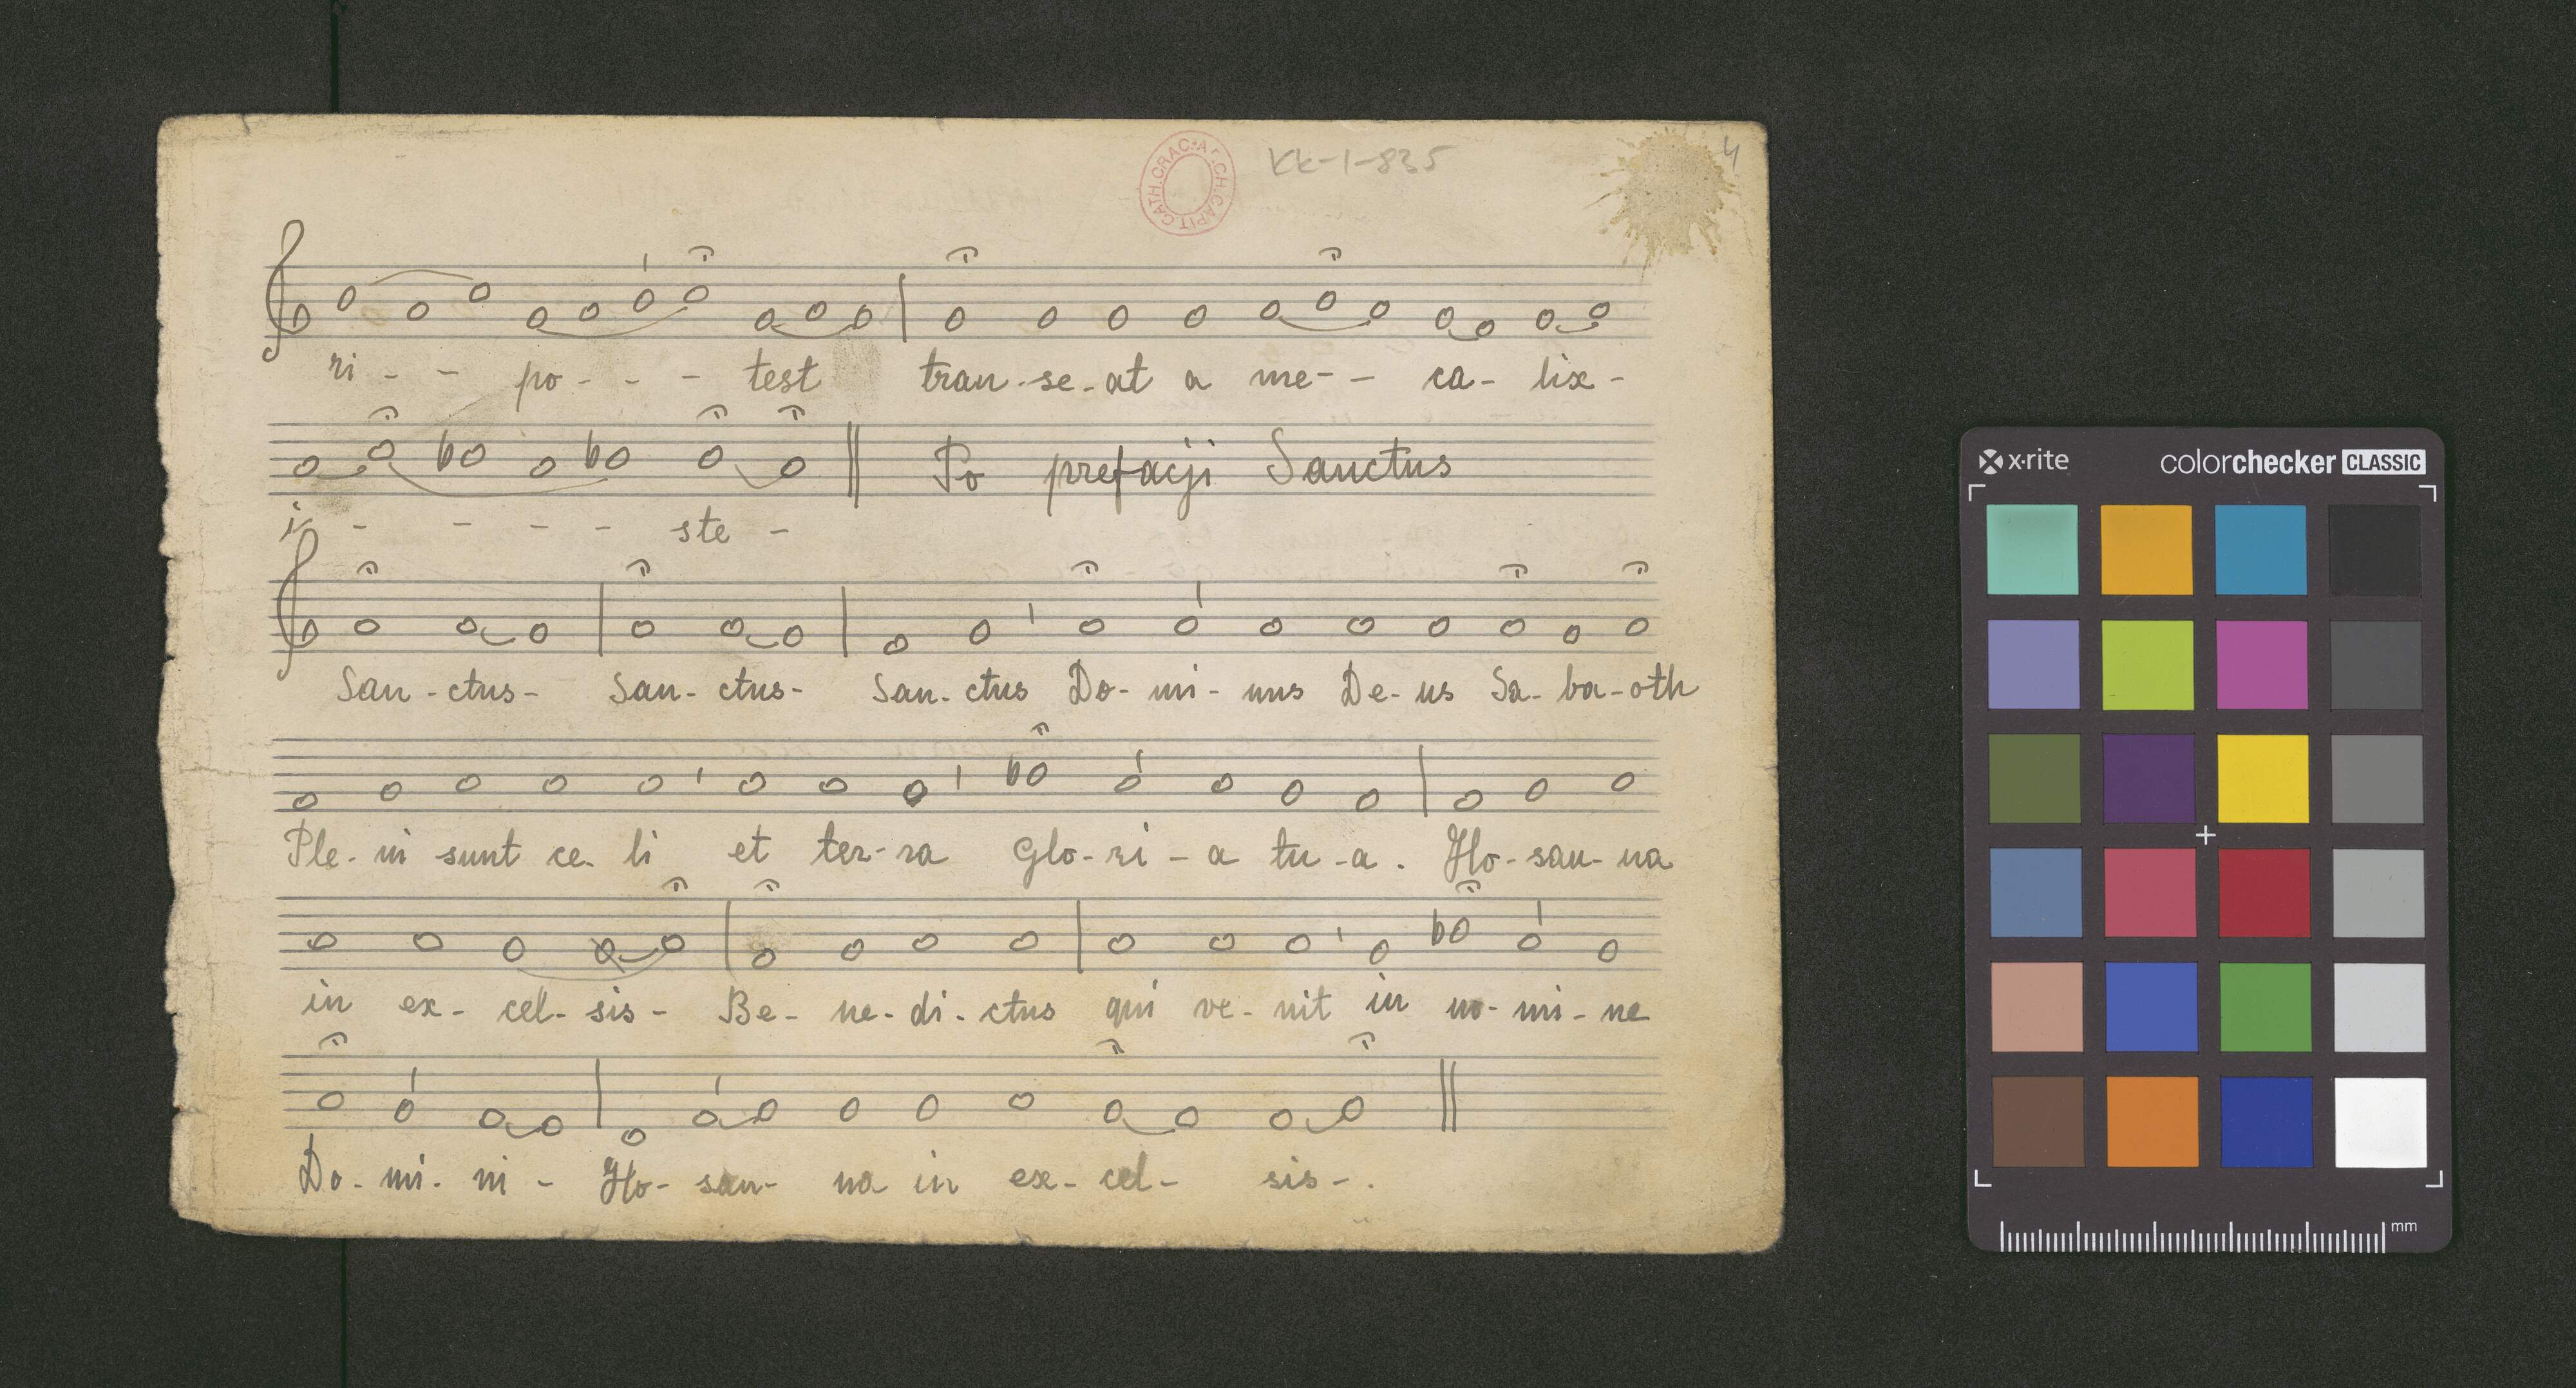 ARCH.CAPIT.CATH.CRAC.
KK-1-835
4
ri - - po - - - test tran - se - at a me - - ca - lix -
Po prefacji Sanctus
i - - - - - ste -
San - ctus - San - ctus - San - ctus Do - mi - nus De - us Sa - ba - oth
Ple - ni sunt ce - li et ter - ra Glo - ri - a tu - a . Ho - san - na
in ex - cel - sis - Be - ne - di - ctus qui ve - nit in no - mi - ne
Do - mi - ni - Ho - san - na in ex - cel - sis - .
x-rite
colorchecker CLASSIC
mm